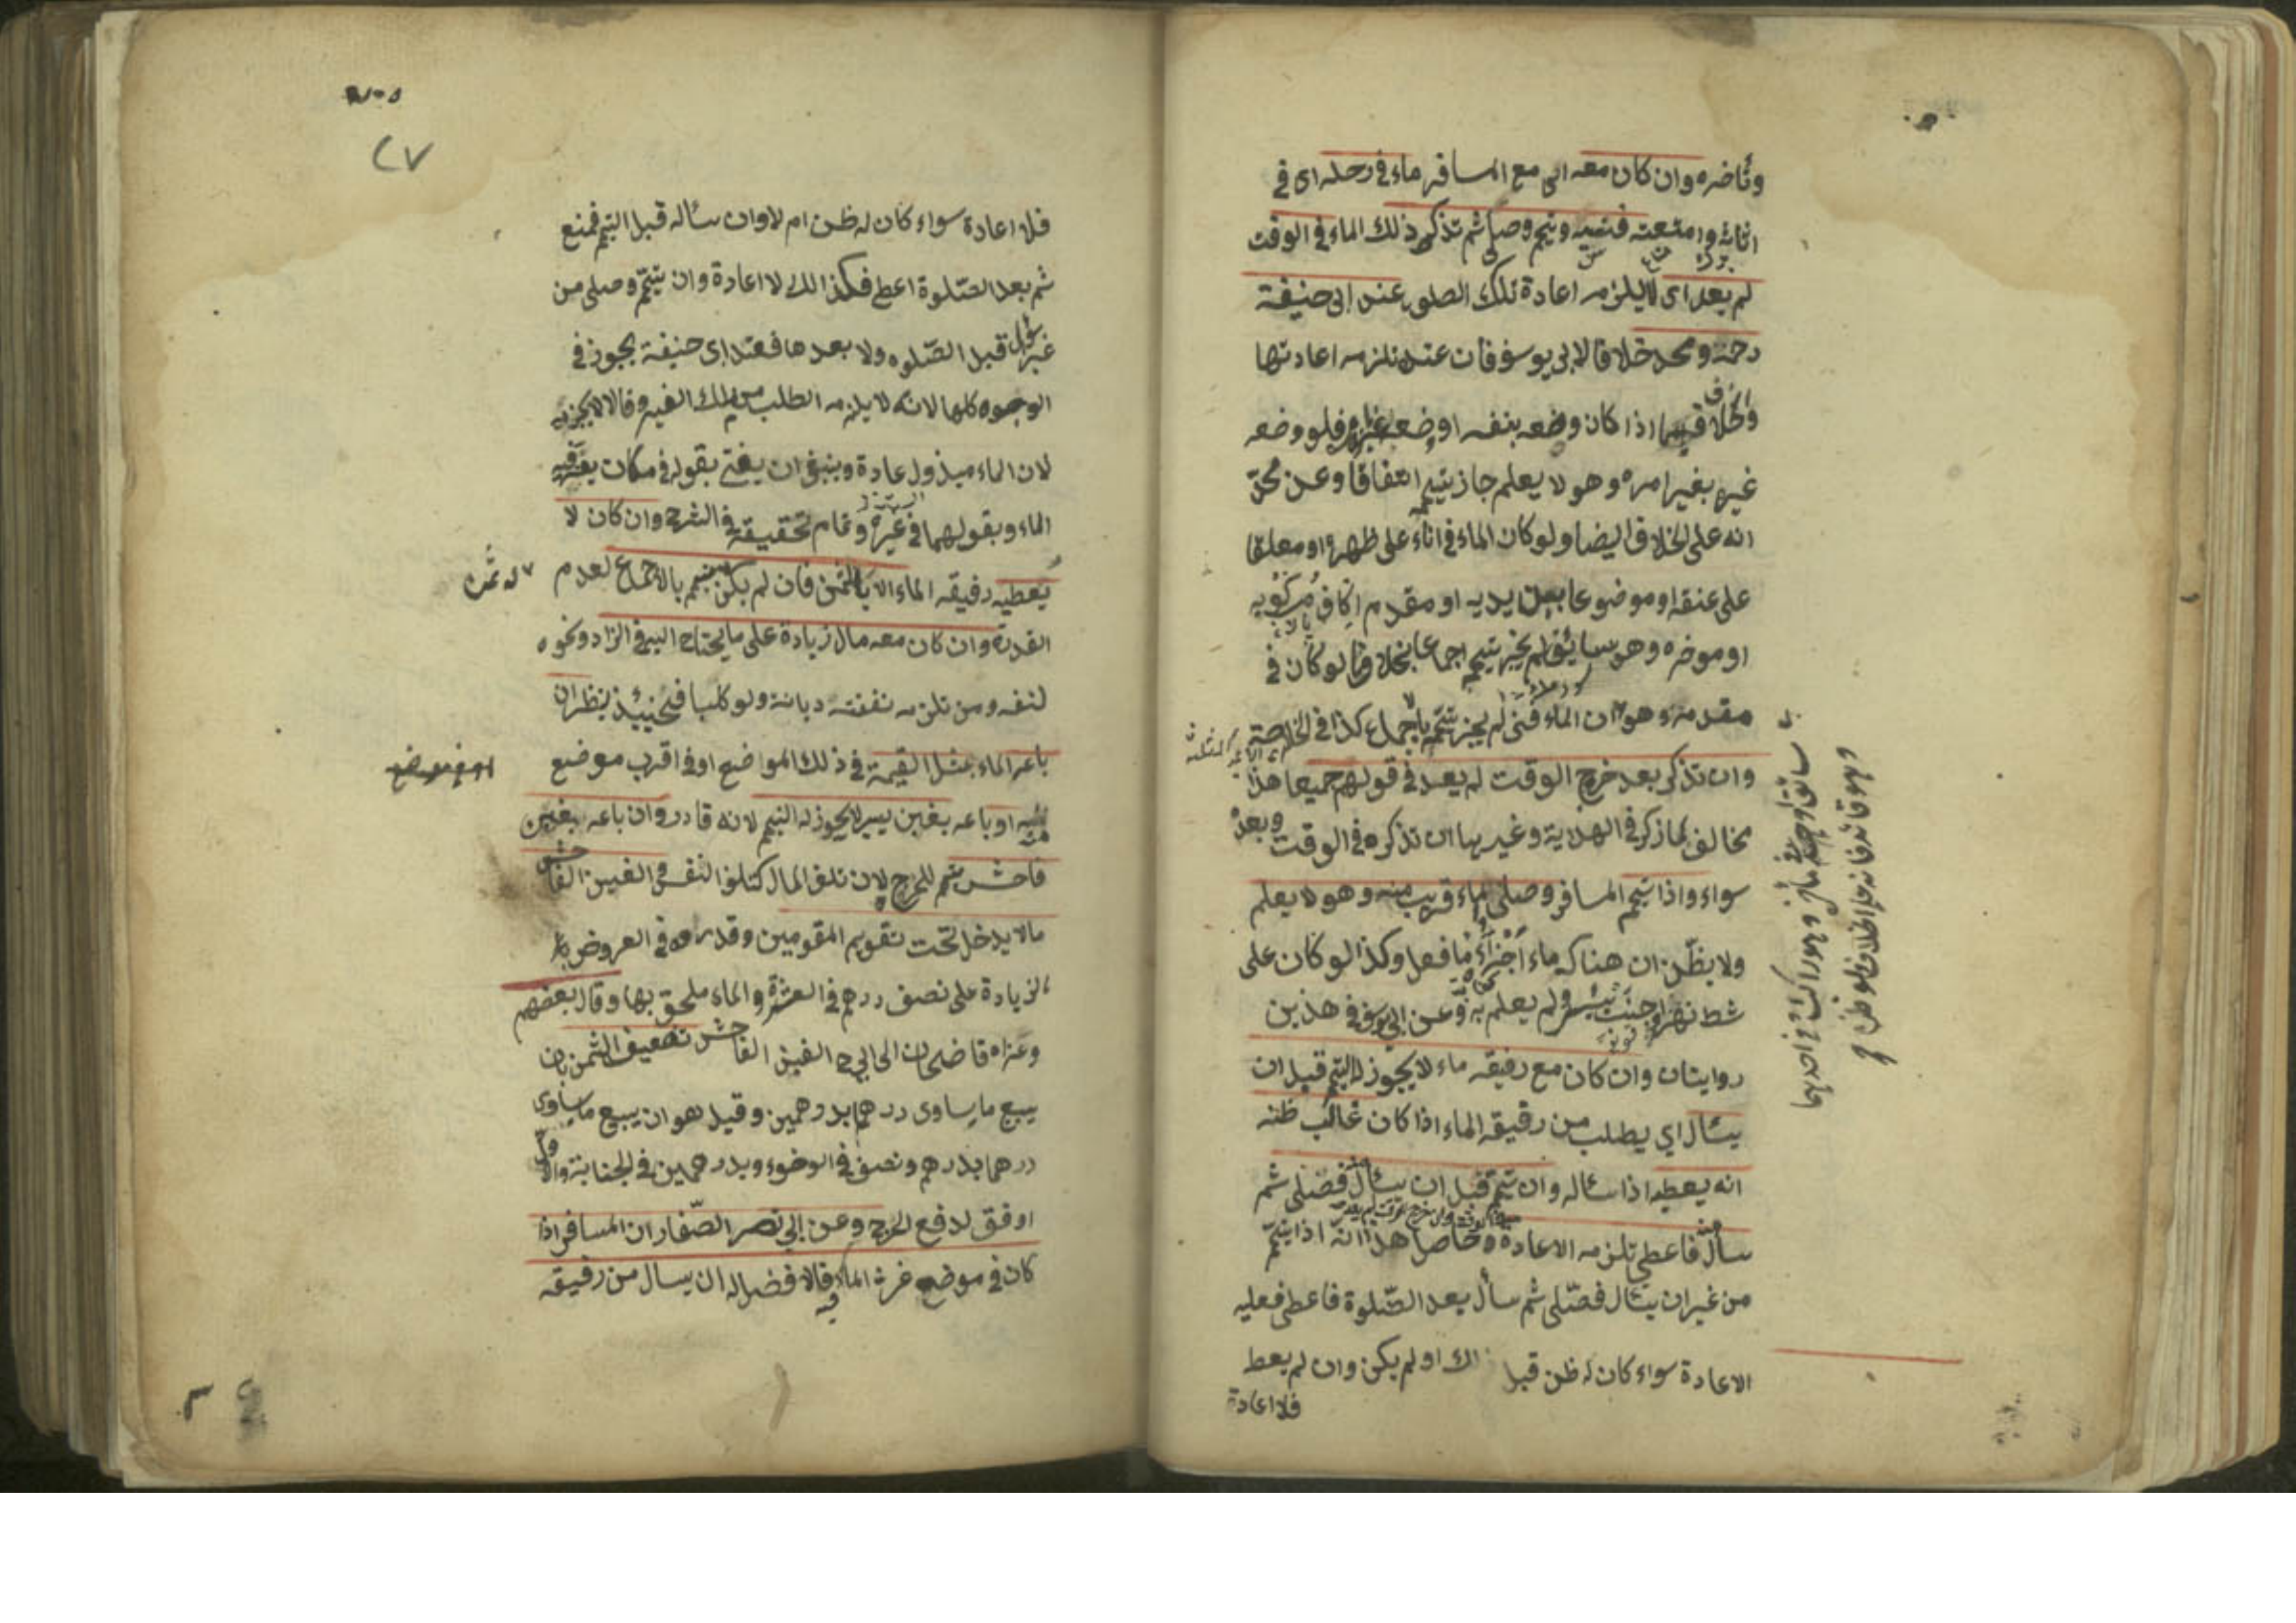 وتأخره وان كان معه اى مع المسافر ماء فى رحله اى فى
اثاثه وامتعته فنسيه وتيمم وصلى ثم تذكر ذلك الماء فى الوقت
لم يعد اى لا يلزمه اعادة تلك الصلوة عند ابى حنيفة
رحمه ومحمد خلافا لابى يوسف فان عنده تلزمه اعادتها
والخلاف فيما اذا كان وضعه بنفسه او وضعه غيره فلو وضعه
غيره بغير امره وهو لا يعلم جاز تيممه اتفاقا وعن محمد
انه على الخلاف ايضا ولو كان الماء فى اناء على ظهره او معلقا
على عنقه او موضوعا بين يديه او مقدم اكاف مركوبه
او مؤخره وهو سائق لم يجز تيممه اجماعا بخلاف ما لو كان فى
مقدمه وهو ان الماء فنى لم يجز تيممه بالاجماع كذا فى الخلاصة
وان تذكر بعد خروج الوقت لم يعد فى قولهم جميعا هذا
مخالف لما ذكر فى الهداية وغيرها ان تذكره فى الوقت وبعده
سواء واذا تيمم المسافر وصلى والماء قريب منه وهو لا يعلم
ولا يظن ان هناك ماء اجزأه ما فعل وكذا لو كان على
شط نهر او جنب بئر ولم يعلم به وعن ابى يوسف فى هذين
روايتان وان كان مع رفيقه ماء لا يجوز له التيمم قبل ان
يسأل اي يطلب من رفيقه الماء اذا كان غالب ظنه
انه يعطيه اذا سأله وان تيمم قبل ان يسأل فصلى ثم
سأل منه فاعطى تلزمه الاعادة وحاصل هذا انه اذا تيمم
من غير ان يسأل فصلى ثم سأل بعد الصلوة فاعطى فعليه
الاعادة سواء كان له ظن قبل ذلك او لم يكن وان لم يعط
فلا اعادة
٢٧
فلا اعادة سواء كان له ظن ام لا وان سأله قبل التيمم فمنع
ثم بعد الصلوة اعطى فكذلك لا اعادة وان تيمم وصلى من
غير سؤال قبل الصلوه ولا بعدها فعند ابى حنيفة يجوز فى
الوجوه كلها لانه لا يلزمه الطلب من ملك الغير وقالا لا يجزيه
لان الماء مبذول عادة وينبغى ان يفتى بقوله فى مكان يعز فيه
الماء وبقولهما فى غيره وتمام تحقيقه فى الشرح وان كان لا
يعطيه رفيقه الماء الا بالثمن فان لم يكن يتيمم بالاجماع لعدم
له ثمن
القدرة وان كان معه مال زيادة على ما يحتاج اليه فى الزاد ونحوه
لنفسه ومن تلزمه نفقته ديانة ولو كلبا فحينئذ ينظر ان
باعه الماء بمثل القيمة فى ذلك المواضع او فى اقرب موضع
منه او باعه بغبن يسير لا يجوز له التيمم لانه قادر وان باعه بغبن
فاحش يتيمم للحرج لان تلف المال كتلف النفس والغبن الفاحش
ما لا يدخل تحت تقويم المقومين وقدروه فى العروض با
لزيادة على نصف درهم فى العشرة والماء ملحق بها وقال بعضهم
وعزاه قاضيخان الى ابى ح الغبن الفاحش تضعيف الثمن بان
يبيع ما يساوى درهما بدرهمين وقيل هو ان يبيع ما يساوى
درهما بدرهم ونصف فى الوضوء وبدرهمين فى الجنابة والاول
اوفق لدفع الحرج وعن ابى نصر الصفار ان المسافر اذا
كان فى موضع عزة الماء فيه فالافضل له ان يسأل من رفيقه